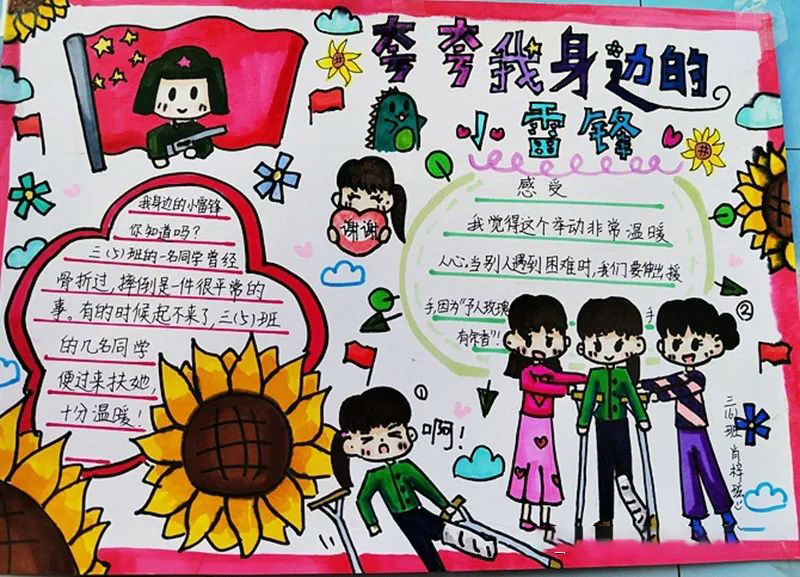 夸夸我身边的
小雷锋
我身边的小雷锋
你知道吗？
三（5）班的一名同学曾经
骨折过，摔倒是一件很平常的
事。有的时候起不来了，三（5）班
的几名同学
便过来扶她，
十分温暖！
谢谢
感受
我觉得这个举动非常温暖
人心，当别人遇到困难时，我们要伸出援
手，因为“予人玫瑰 手
有余香”！
①
啊！
②
三（6）班 肖梓